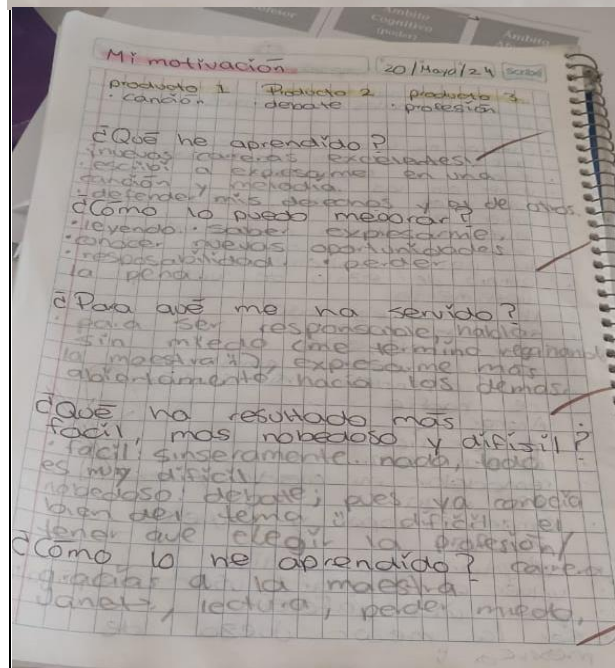 Ámbito
Cognitivo
(poder)
Ámbito
Mi motivación 20/Mayo/24
producto 1 Producto 2 producto 3
· canción · debate · profesión
¿Qué he aprendido?
nuevas carreras excelentes.
· escribí a expresarme en una
canción y melodía
· defender mis derechos y de otros.
¿Cómo lo puedo megorar?
· leyendo · saber expresarme.
· conocer nuevas oportunidades
· resposabilidad · perder
la pena.
¿Para qué me ha servido?
· para ser responsable, hablar
sin miedo (me termino regañando
la maestra), expresarme más
abiertamente hacia los demás.
¿Qué ha resultado más
facíl, mas nobedoso y difísil?
· facíl: sinseramente nada, todo
es muy difícil
nobedoso: debate; pues ya conocía
bien del tema difícil: el
tener que elegir la profesión/
¿Cómo lo he aprendido?
gracias a la maestra
Janet, lectura, peder miedo,